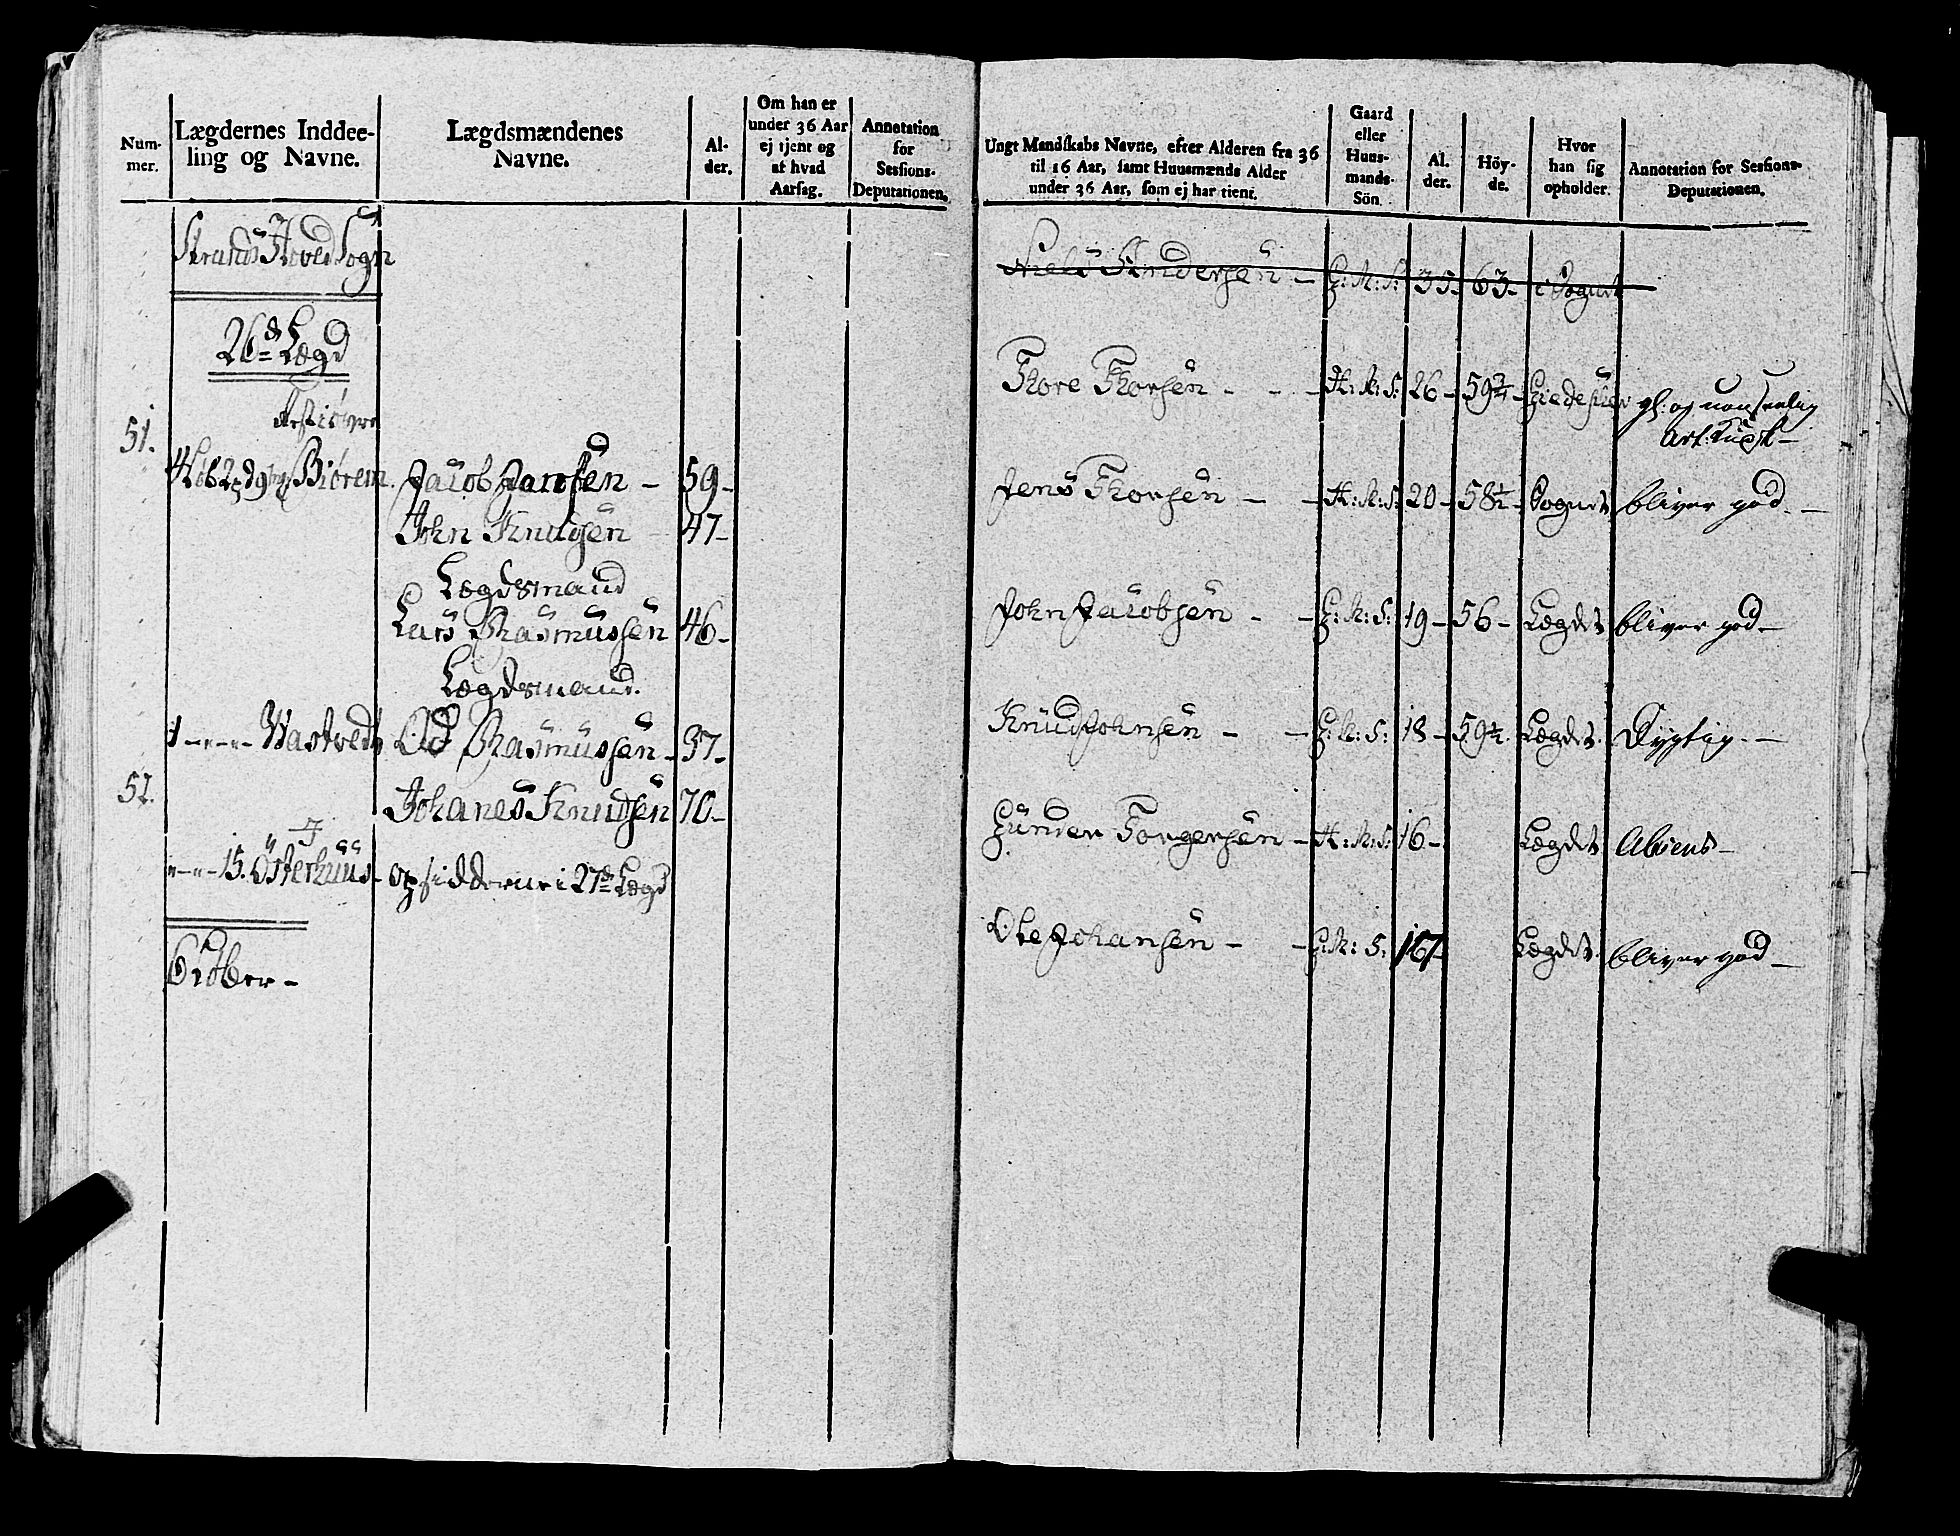 Num-
mer.
Lægdernes Inddee-
ling og Navne.
Lægdsmændenes
Navne.
Al-
der.
Om han er
under 36 Aar
ej tjent og
af hvad
Aarsag.
Annotation
for
Sessions-
Deputationen.
Strands Hoved Sogn
26de Lægd
51.
Biørem
Jacob Jansen - 59-
John Knudsen - 47-
Lægdsmand
Lars Rasmussen 46-
Lægdsmand.
1 - - - Vastvedt Od Rasmussen - 37-
52.
Johanes Knudsen 70-
- - - 15. Österhuus - opsidderne i 27de Lægd
6 Løber -
Ungt Mandskabs Navne, efter Alderen fra 36
til 16 Aar, samt Huusmænds Alder
under 36 Aar, som ej har tient.
Gaard
eller
Huus-
mands-
Sön.
Al.
der.
Höy-
de.
Hvor
han sig
opholder.
Annotation for Sessions-
Deputationen.
Niels Andersen - G: M: S: 35- 63- i Sognet
Thore Thorsen - - - H: M: S: 26- 59 3/4 -
Jens Thorsen - - H: M: S: 20- 58 1/2 - Sognet bliver god. -
John Jacobsen - - G: M: S: 19- 56- Lægdet bliver god -
Knud Johnsen - - G: M: S: 18- 59 1/2. Lægdet. Dygtig. -
Gunder Torgersen - H: M: S: 16- Lægdet Absens -
Ole Johansen - - G: M: S: 16- Lægdet. bliver god -